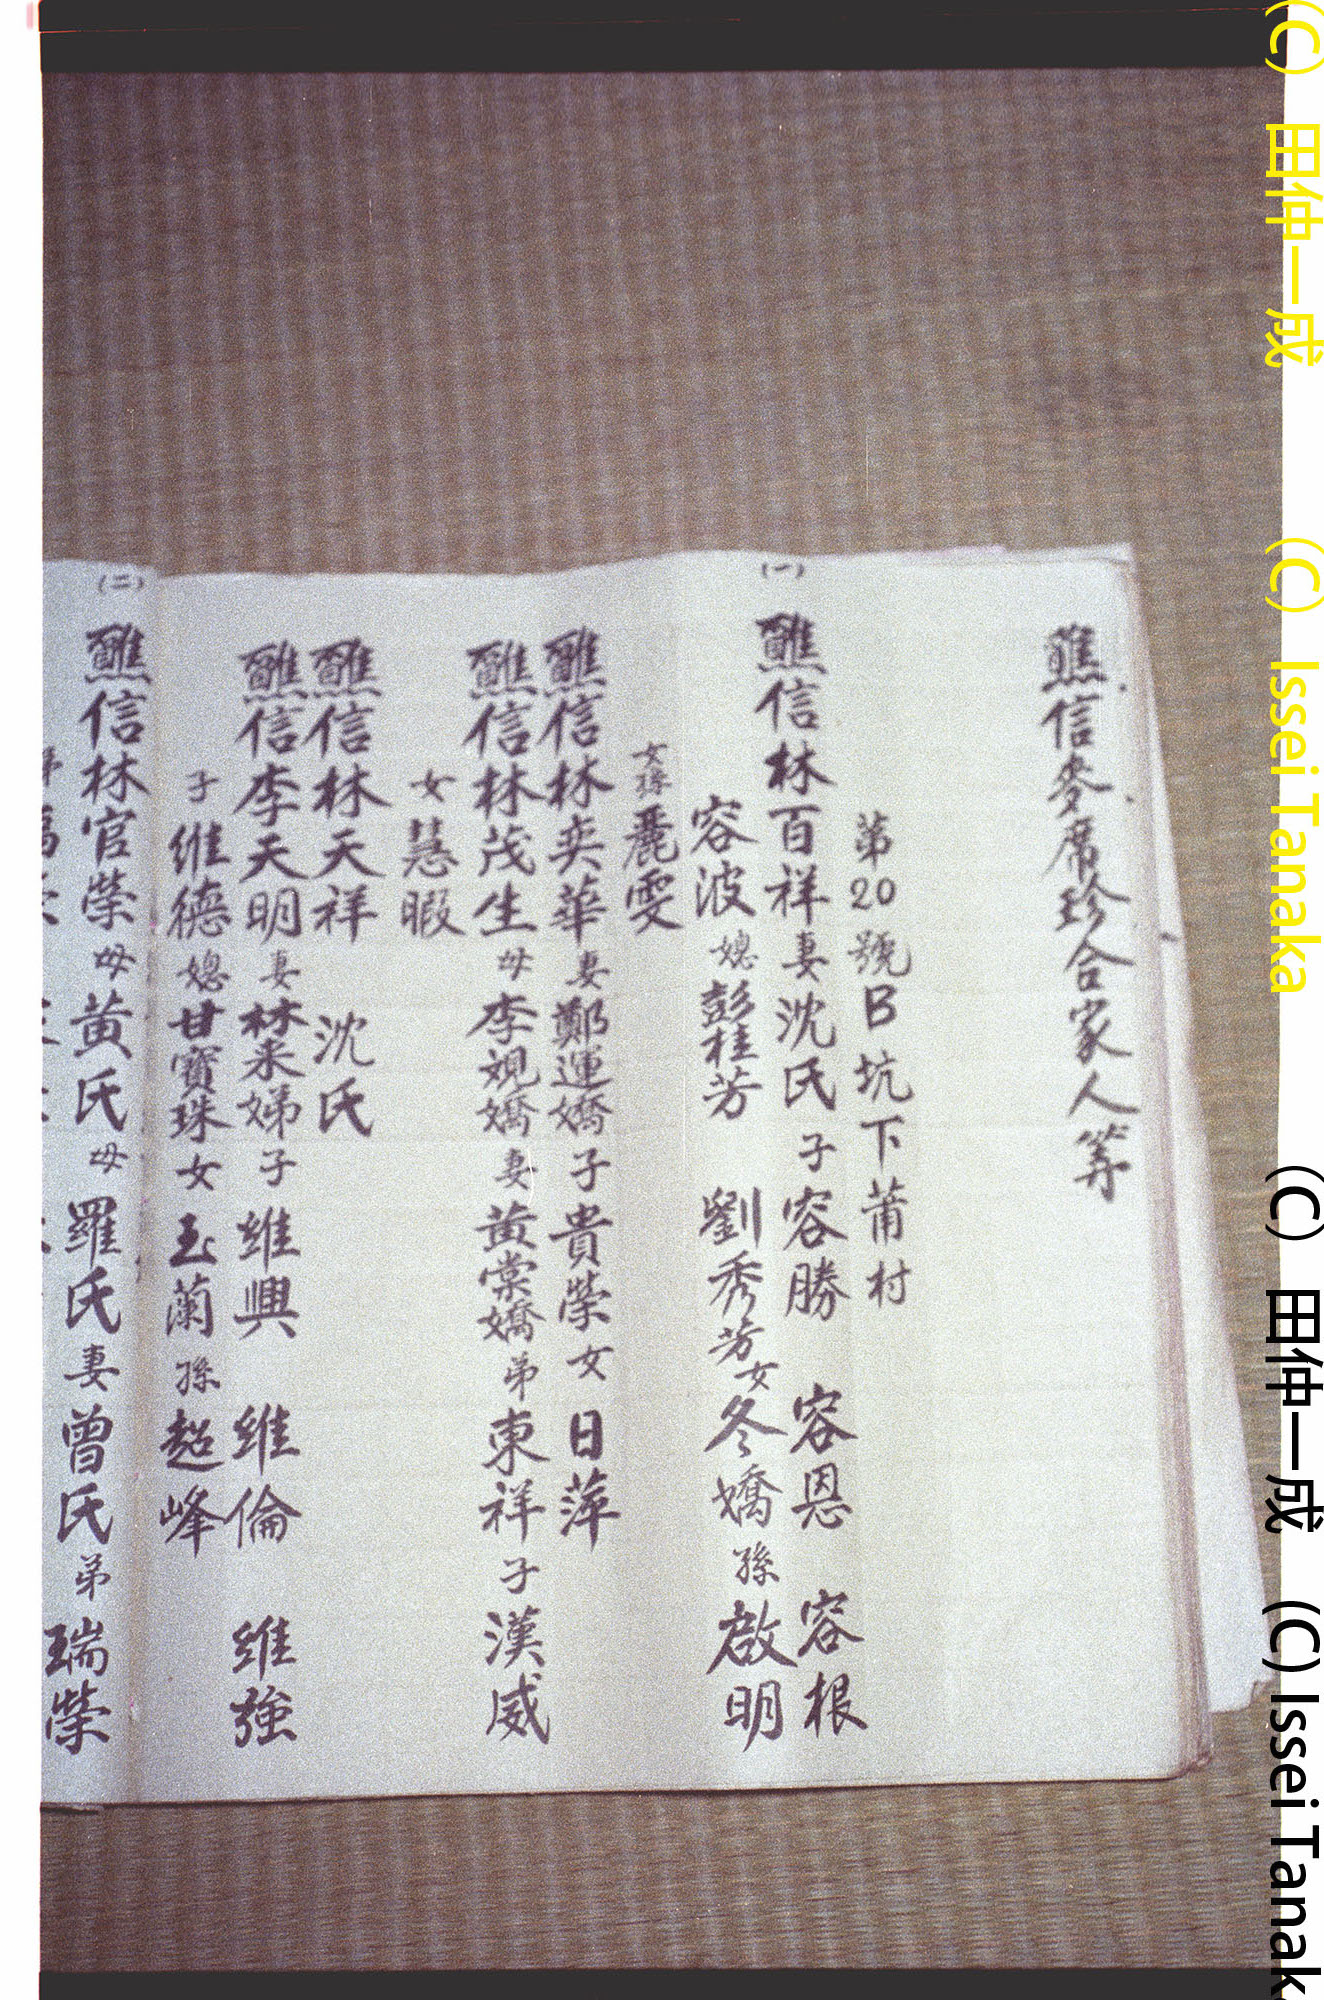 醮信麥席珍合家人等
第20號B坑下莆村
(一)
醮信林百祥妻沈氏子容勝 容恩 容根
容波媳彭桂芳 劉秀芳女冬嬌孫啟明
女孫麗雯
醮信林奕華妻鄭運嬌子貴榮女日萍
醮信林茂生母李娊嬌妻黃棠嬌弟東祥子漢威
女慧暇
醮信林天祥 沈氏
醮信李天明妻林來娣子維興 維倫 維強
子維德媳甘寶珠女玉蘭孫超峰
(二)
醮信林官榮母黃氏母羅氏妻曾氏弟瑞榮
(C) 田仲一成 (C) Issei Tanaka (C) 田仲一成 (C) Issei Tanak